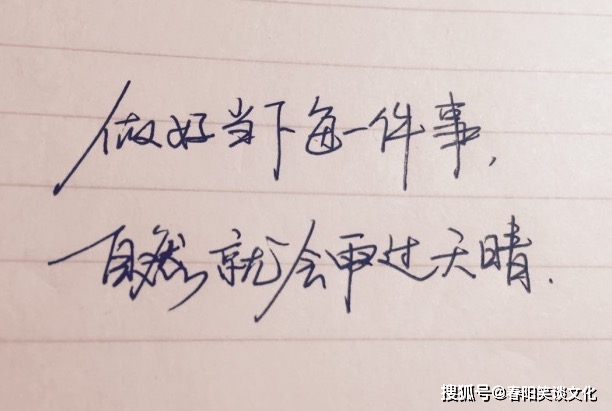 做好当下每一件事,
自然就会雨过天晴.
搜狐号@春阳笑谈文化